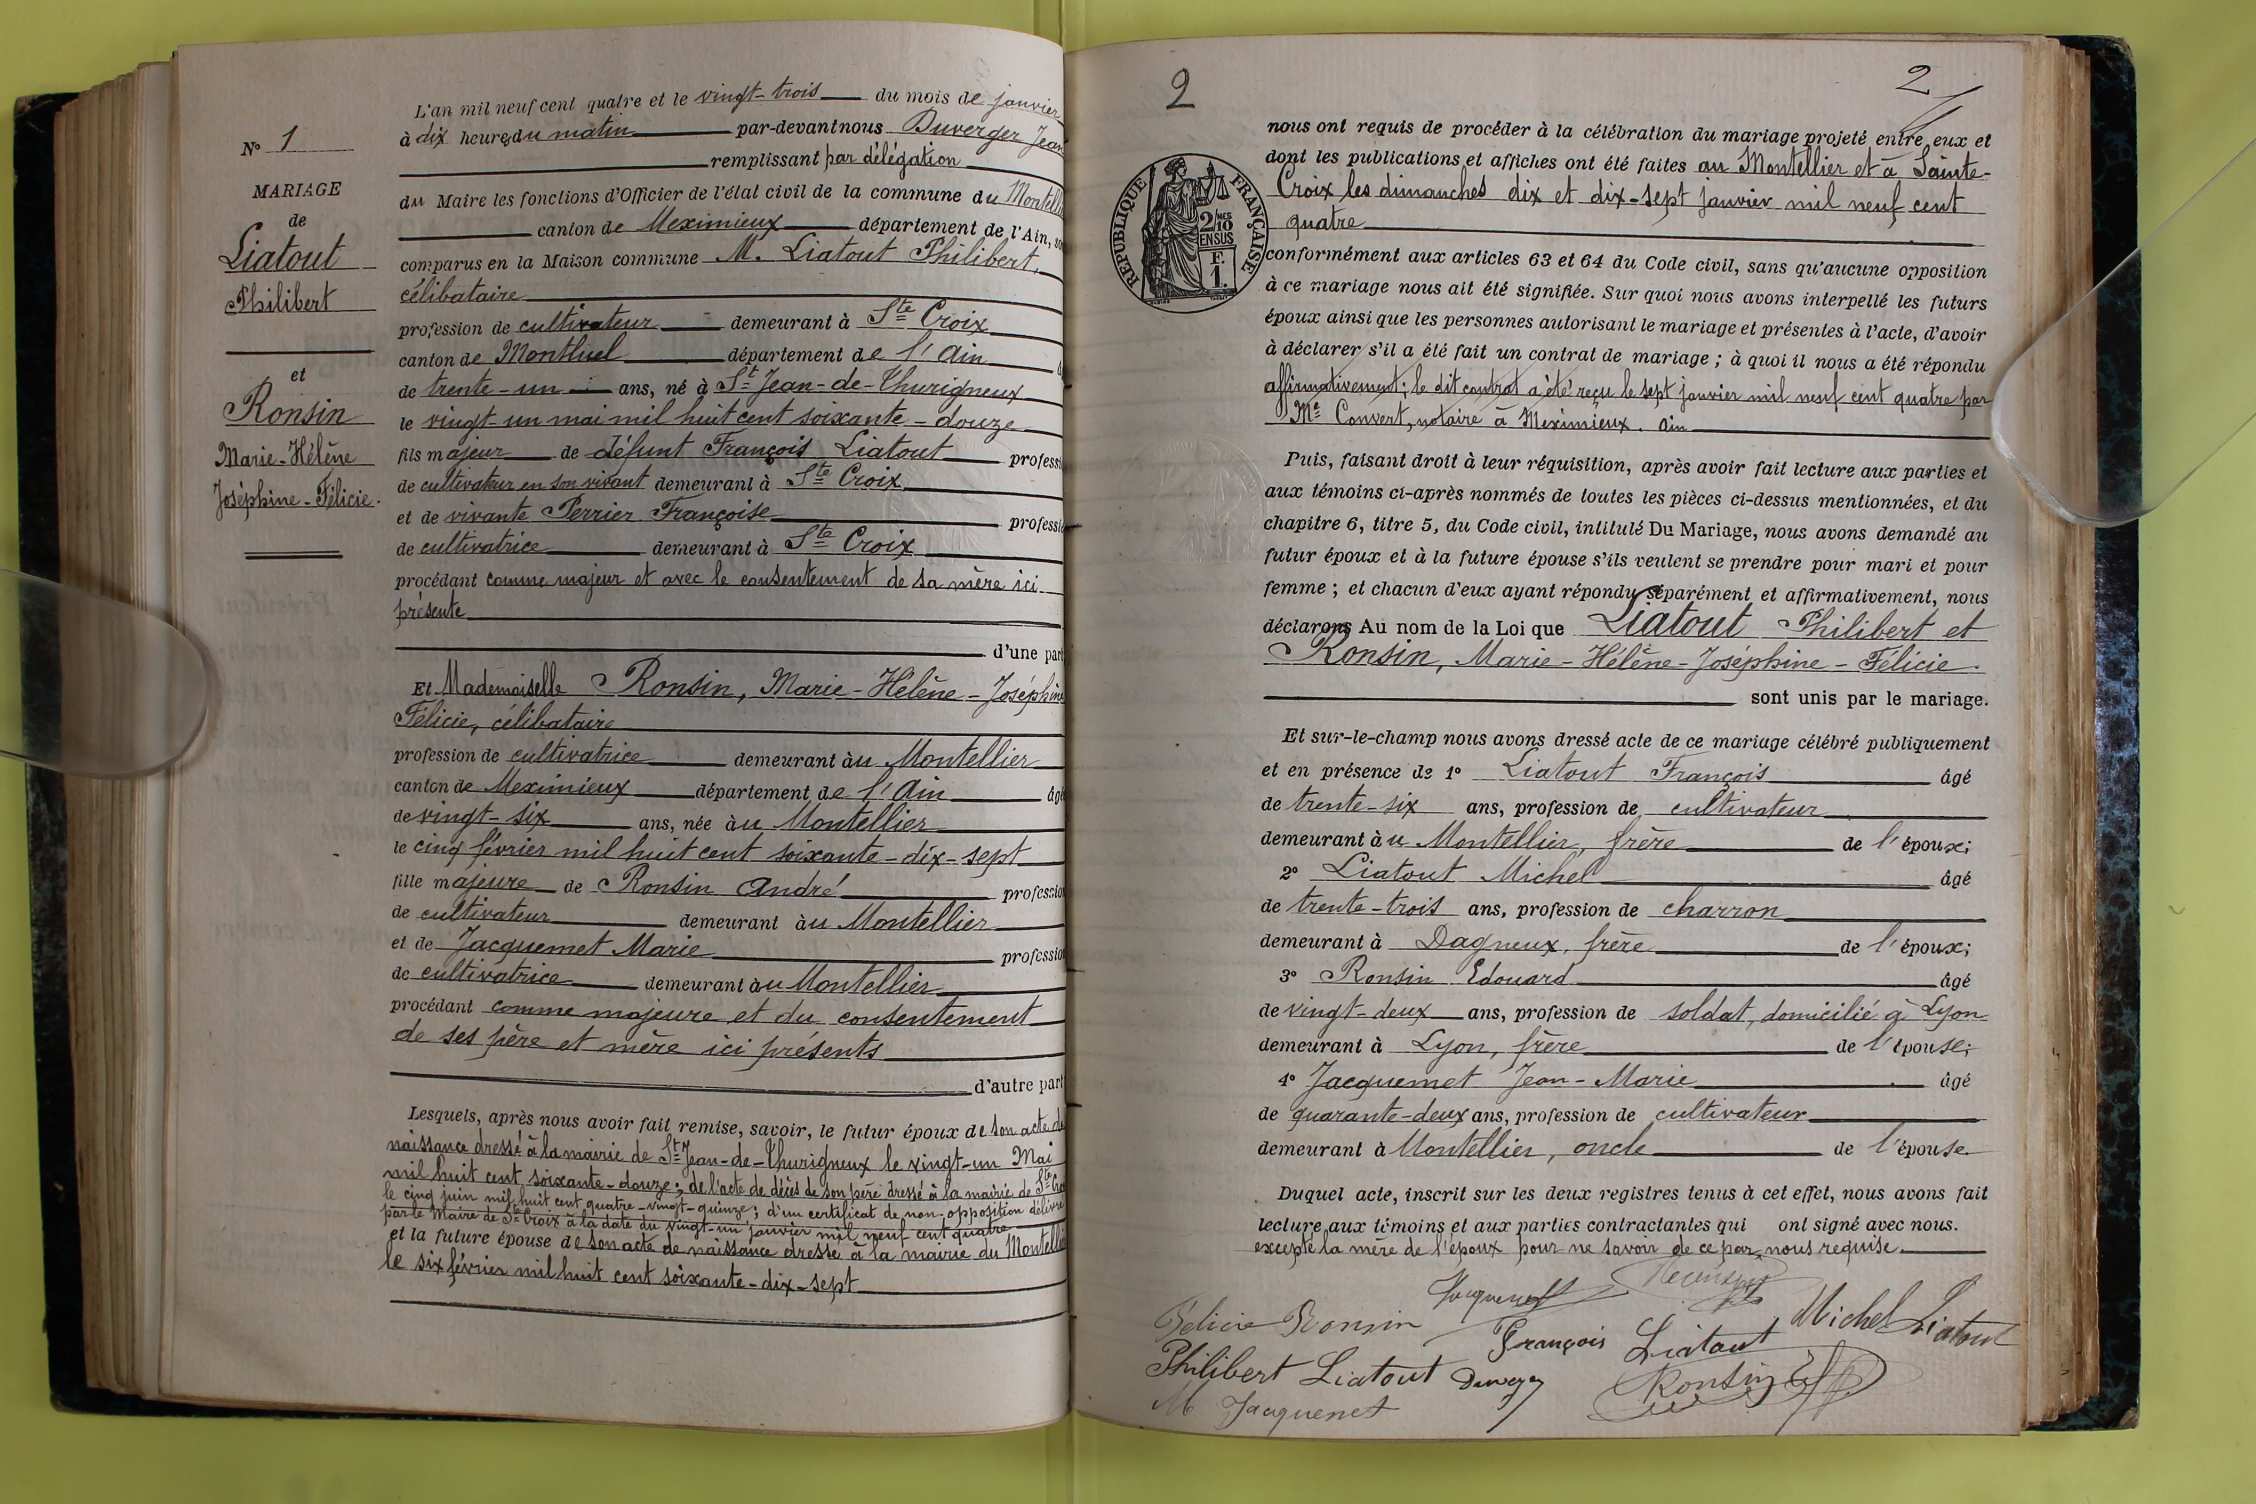 N° 1
MARIAGE
de
Liatout
Philibert
et
Ronsin
Marie-Hélène
Joséphine-Félicie.
L'an mil neuf cent quatre et le vingt-trois du mois de janvier
à dix heures du matin par-devant nous Duverger Jean
remplissant par délégation
du Maire les fonctions d'Officier de l'état civil de la commune du Montellier
canton de Meximieux département de l'Ain, sont
comparus en la Maison commune M. Liatout Philibert,
célibataire
profession de cultivateur demeurant à Ste Croix
canton de Montluel département de l'Ain
de trente-un ans, né à St Jean-de-Thurigneux
le vingt-un mai mil huit cent soixante-douze
fils majeur de défunt François Liatout profession
de cultivateur en son vivant demeurant à Ste Croix
et de vivante Perrier Françoise profession
de cultivatrice demeurant à Ste Croix
procédant comme majeur et avec le consentement de sa mère ici
présente
d'une part
Et Mademoiselle Ronsin, Marie-Hélène-Joséphine
Félicie, célibataire
profession de cultivatrice demeurant àu Montellier
canton de Meximieux département de l'Ain âgée
de vingt-six ans, née àu Montellier
le cinq février mil huit cent soixante-dix-sept
fille majeure de Ronsin André profession
de cultivateur demeurant àu Montellier
et de Jacquemet Marie profession
de cultivatrice demeurant àu Montellier
procédant comme majeure et du consentement
de ses père et mère ici présents
d'autre part
Lesquels, après nous avoir fait remise, savoir, le futur époux de son acte de
naissance dressé à la mairie de St Jean-de-Thurigneux le vingt-un Mai
mil huit cent soixante-douze; de l'acte de décès de son père dressé à la mairie de Ste Croix
le cinq juin mil huit cent quatre-vingt-quinze; d'un certificat de non-opposition délivré
par le Maire de Ste Croix à la date du vingt-un janvier mil neuf cent quatre
et la future épouse de son acte de naissance dressé à la mairie du Montellier
le six février mil huit cent soixante-dix-sept
2
2
RÉPUBLIQUE FRANÇAISE
2/10 MES
EN SUS
F.
1.
nous ont requis de procéder à la célébration du mariage projeté entre eux et
dont les publications et affiches ont été faites au Montellier et à Sainte-
Croix les dimanches dix et dix-sept janvier mil neuf cent
quatre
conformément aux articles 63 et 64 du Code civil, sans qu'aucune opposition
à ce mariage nous ait été signifiée. Sur quoi nous avons interpellé les futurs
époux ainsi que les personnes autorisant le mariage et présentes à l'acte, d'avoir
à déclarer s'il a été fait un contrat de mariage ; à quoi il nous a été répondu
affirmativement; le dit contrat a été reçu le sept janvier mil neuf cent quatre par
Me Convert, notaire à Meximieux. Ain
Puis, faisant droit à leur réquisition, après avoir fait lecture aux parties et
aux témoins ci-après nommés de toutes les pièces ci-dessus mentionnées, et du
chapitre 6, titre 5, du Code civil, intitulé Du Mariage, nous avons demandé au
futur époux et à la future épouse s'ils veulent se prendre pour mari et pour
femme ; et chacun d'eux ayant répondu séparément et affirmativement, nous
déclarons Au nom de la Loi que Liatout Philibert et
Ronsin, Marie-Hélène-Joséphine-Félicie.
sont unis par le mariage.
Et sur-le-champ nous avons dressé acte de ce mariage célébré publiquement
et en présence de 1° Liatout François âgé
de trente-six ans, profession de cultivateur
demeurant àu Montellier, frère de l'époux;
2° Liatout Michel âgé
de trente-trois ans, profession de charron
demeurant à Dagneux, frère de l'époux;
3° Ronsin Edouard âgé
de vingt-deux ans, profession de soldat, domicilié à Lyon
demeurant à Lyon, frère de l'épouse;
4° Jacquemet Jean-Marie âgé
de quarante-deux ans, profession de cultivateur
demeurant à Montellier, oncle de l'épouse.
Duquel acte, inscrit sur les deux registres tenus à cet effet, nous avons fait
lecture aux témoins et aux parties contractantes qui ont signé avec nous.
excepté la mère de l'époux pour ne savoir de ce par nous requise.
Jacquemet
Félicie Ronsin François Liatout Michel Liatout
Philibert Liatout Duverger Ronsin
M Jacquemet